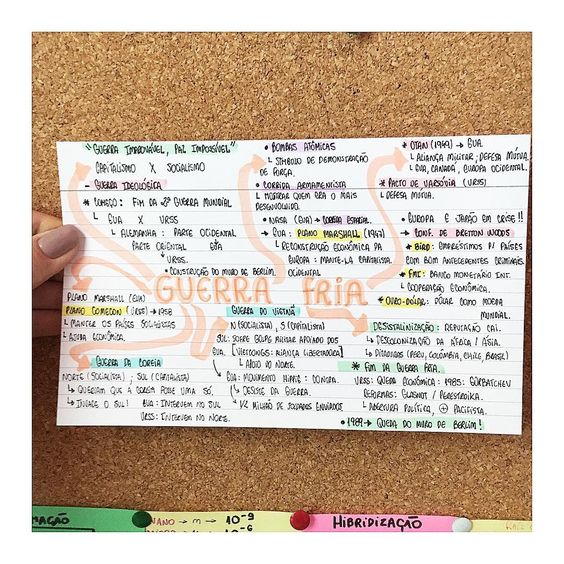 "GUERRA IMPROVÁVEL, PAZ IMPOSSÍVEL"
CAPITALISMO X SOCIALISMO
- GUERRA IDEOLÓGICA
* COMEÇO: FIM DA 2ª GUERRA MUNDIAL
└ EUA X URSS
└ ALEMANHA: PARTE OCIDENTAL
PARTE ORIENTAL EUA
↳ URSS.
• CONSTRUÇÃO DO MURO DE BERLIM.
• BOMBAS ATÔMICAS
└ SÍMBOLO DE DEMONSTRAÇÃO
DE FORÇA.
• CORRIDA ARMAMENTISTA
└ MOSTRAR QUEM ERA O MAIS
DESENVOLVIDO.
• NASA (EUA) → CORRIDA ESPACIAL.
→ EUA: PLANO MARSHALL (1947)
└ RECONSTRUÇÃO ECONÔMICA PA
EUROPA: MANTÊ-LA CAPITALISTA.
OCIDENTAL
* OTAN (1949) → EUA.
└ ALIANÇA MILITAR; DEFESA MÚTUA.
└ EUA, CANADÁ, EUROPA OCIDENTAL.
* PACTO DE VARSÓVIA (URSS)
└ DEFESA MÚTUA.
• EUROPA E JAPÃO EM CRISE!!
→ CONF. DE BRETTON WOODS
* BIRD: EMPRÉSTIMOS P/ PAÍSES
COM BOM ANTECEDENTES CRIMINAIS.
* FMI: BANCO MONETÁRIO INT.
└ COOPERAÇÃO ECONÔMICA.
* OURO-DÓLAR: DÓLAR COMO MOEDA
MUNDIAL.
GUERRA FRIA
PLANO MARSHALL (EUA)
PLANO COMECON (URSS) → 1958
└ MANTER OS PAÍSES SOCIALISTAS
└ AJUDA ECONÔMICA.
GUERRA DA COREIA
NORTE (SOCIALISTA); SUL (CAPITALISTA)
↳ QUERIAM QUE A COREIA FOSSE UMA SÓ.
↳ INVADE O SUL! EUA: INTERVEM NO SUL
URSS: INTERVEM NO NORTE.
GUERRA DO VIETNÃ
N (SOCIALISTA), S (CAPITALISTA)
SUL: SOFRE GOLPE MILITAR APOIADO DOS
EUA. [VIETCONGS: ALIANÇA LIBERTADORA]
└ APOIO DO NORTE.
EUA: MOVIMENTO HIPPIE: CONTRA.
↳ DESISTE DA GUERRA.
↳ 1/2 MILHÃO DE SOLDADOS ENVIADOS.
DESISTALINIZAÇÃO: REPUTAÇÃO CAI.
↳ DESCOLONIZAÇÃO DA ÁFRICA / ÁSIA.
↳ DITADURAS (PERU, COLÔMBIA, CHILE, BRASIL)
* FIM DA GUERRA FRIA
URSS: QUEDA ECONÔMICA: 1985: GORBATCHEV
REFORMAS: GLASNOT / PERESTROIKA.
└ ABERTURA POLÍTICA, ⊕ PACIFISTA.
• 1989 → QUEDA DO MURO DE BERLIM!
MAÇÃO
NANO → m → 10⁻⁹
10⁻⁶
HIBRIDIZAÇÃO